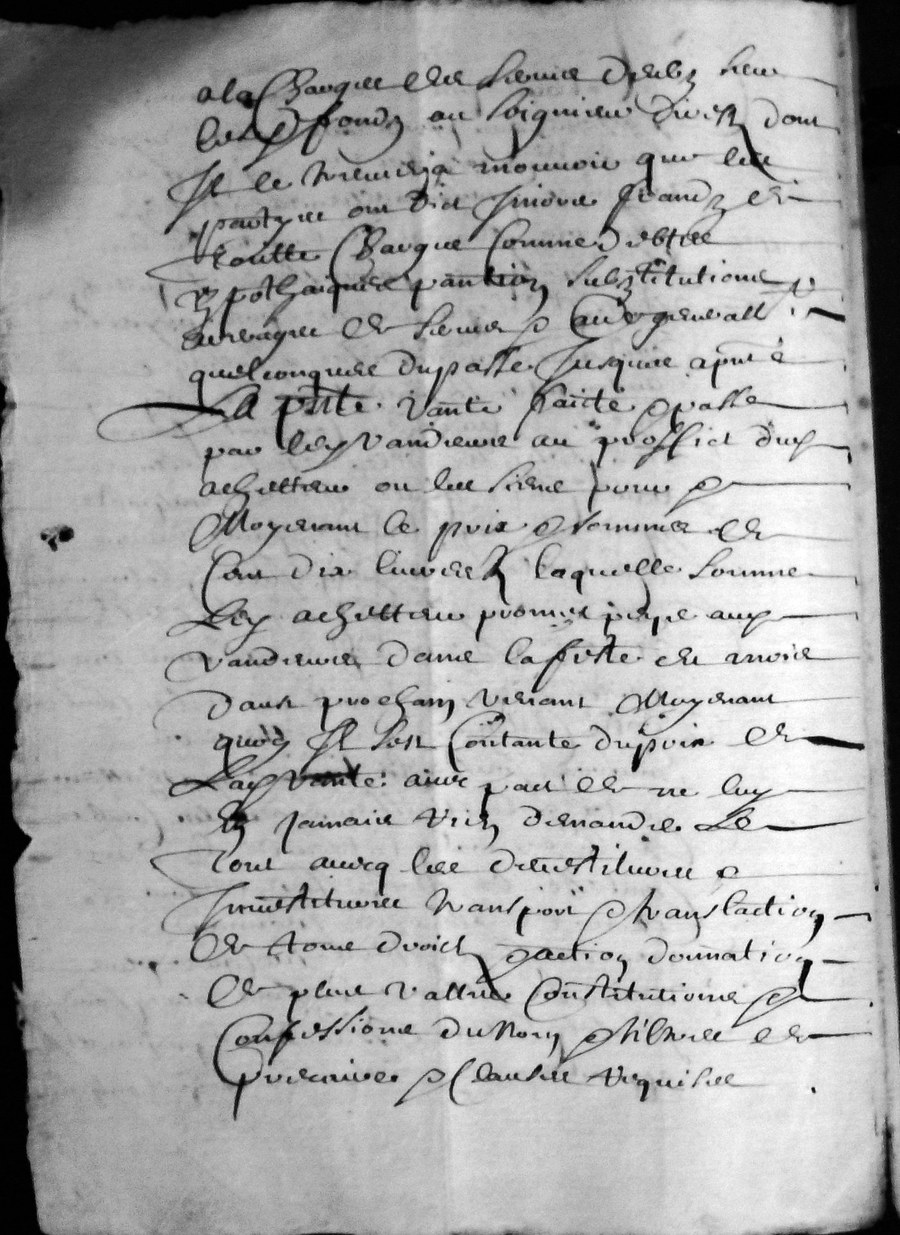 a la Charge de servis deubz sur
lesd fondz au seigneur direct dont
Il se treuvera mouvoir que les
partyes ont dict Ignorer francz de
toutte Charge Comme debtes
ypothaiques pantion substitutions
arreyrages de servis & Cas general
quelconques du passe Jusques a pnt &
La pnte vante faicte & passe
par lesd vandeurs au proffict dud
achetteur ou les siens pour &
Moyenant le prix & somme de
Cent dix livres laquelle somme
Led achetteur promet payer ausd
vandeurs dans la feste de
daust prochain venant Moyenant
quoy Il sest Contante du prix de
Lad vante avec pact de ne luy
En Jamais rien demander Le
tout avecq les devestitures &
Investitures transport & translaction
de tous droictz & action donnation
de plus vallue Constitutions &
Confessions du nom & tiltres de
precaires & Clauses requises